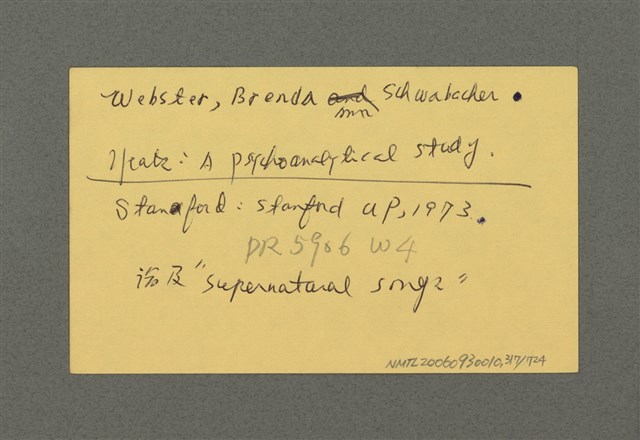 Webster, Brenda Schwabacher.
Yeats: A psychoanalytical study.
Stanford: Stanford UP, 1973.
PR 5906 W4
涉及 "Supernatural songs"
NMTL20060930010,317/1724